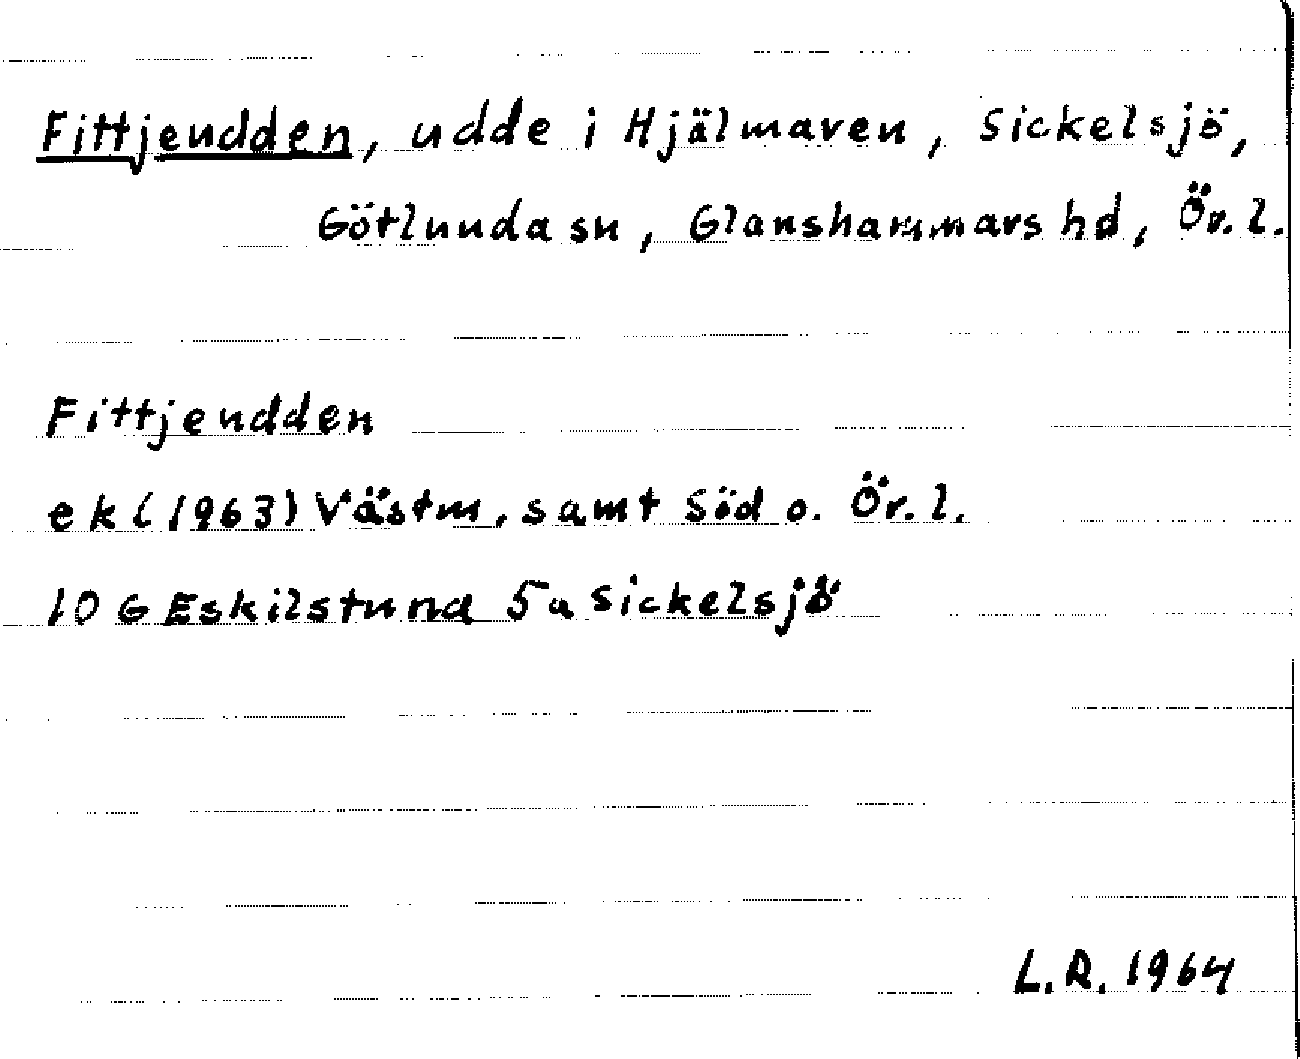 Fittjeudden, udde i Hjälmaren, Sickelsjö,
Götlunda sn, Glanshammars hd, Ör. l.
Fittjeudden
ek (1963) Västm. samt Söd o. Ör. l.
10 G Eskilstuna 5a Sickelsjö
L.R. 1964